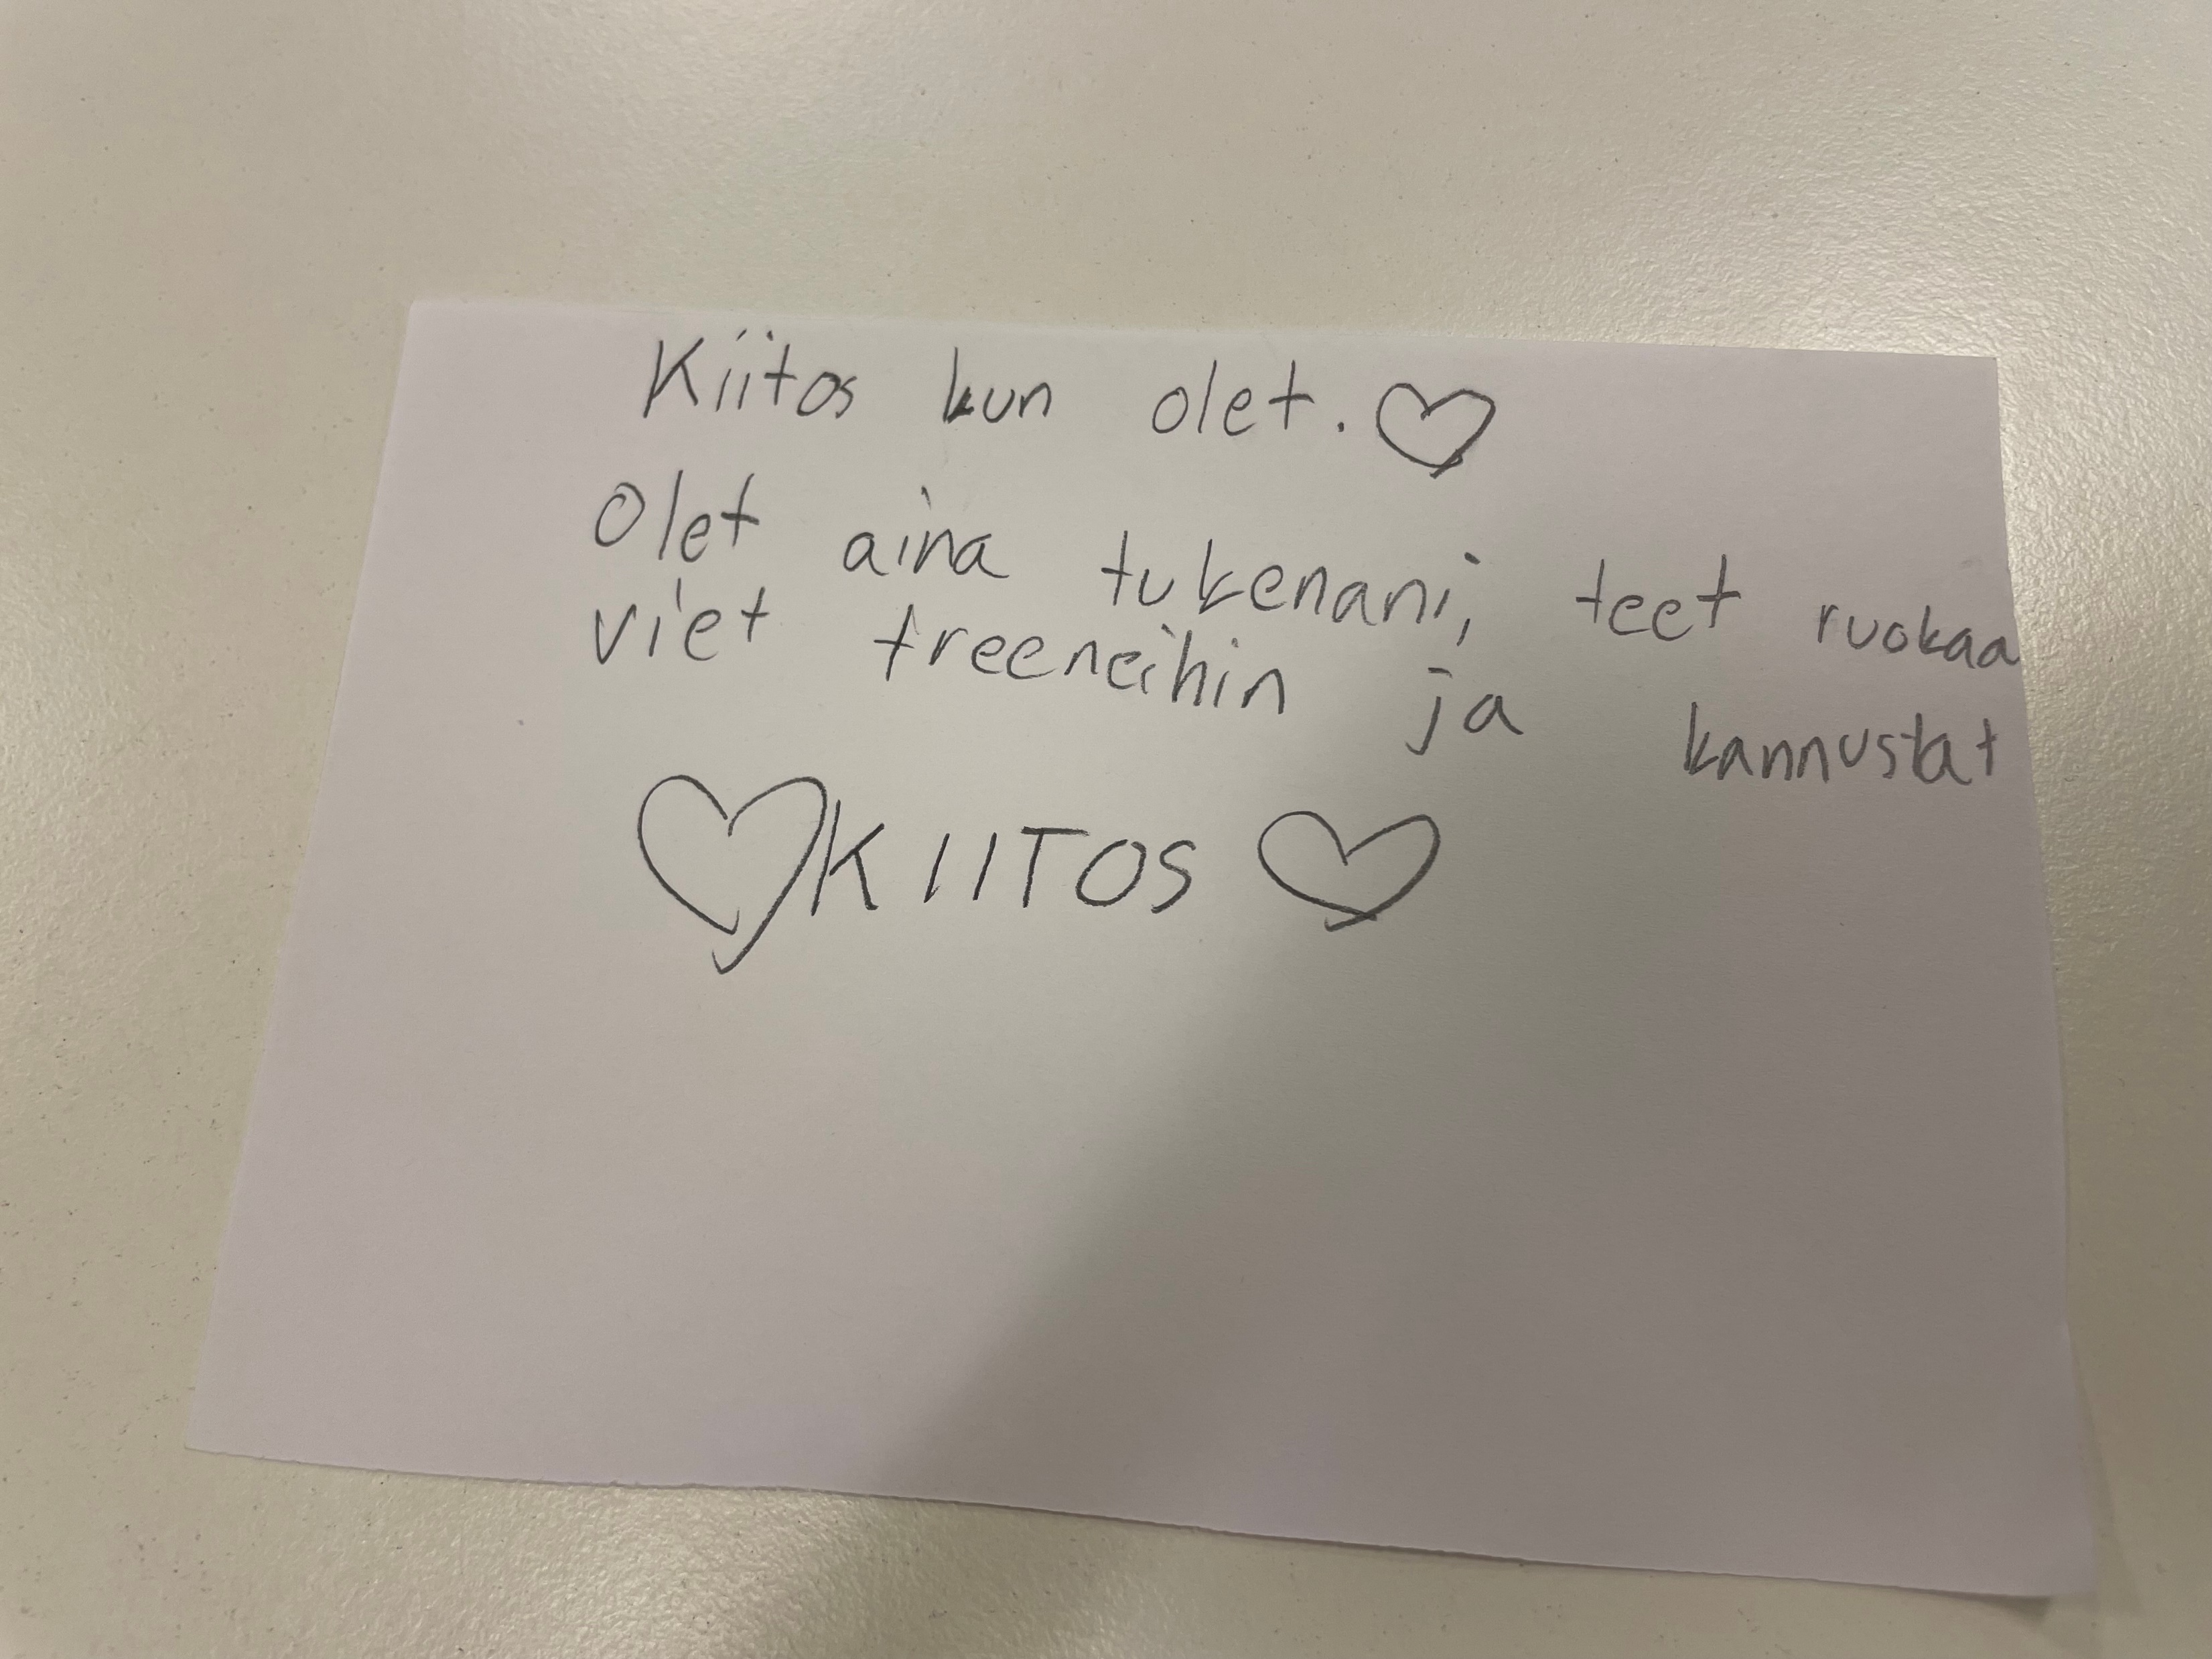 Kiitos kun olet. ♡
Olet aina tukenani, teet ruokaa
viet treeneihin ja kannustat
♡ KIITOS ♡